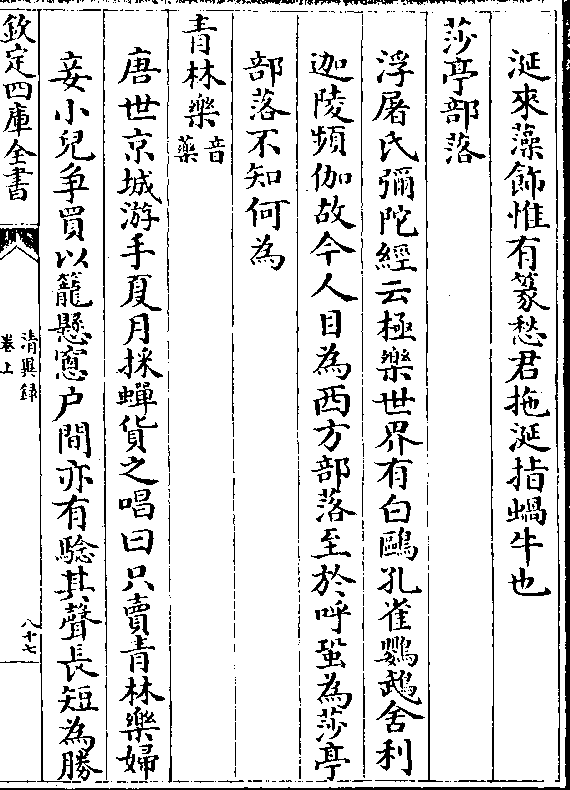 涎來藻飾惟有篆愁君拖涎指蝸牛也
莎亭部落
浮屠氏彌陀經云極樂世界有白鷗孔雀鸚鵡舍利
迦陵頻伽故今人目為西方部落至於呼蛩為莎亭
部落不知何為
青林樂音藥
唐世京城游手夏月採蟬貨之唱曰只賣青林樂婦
妾小兒争買以籠懸窻户間亦有驗其聲長短為勝
欽定四庫全書
清異録
卷上
八十七